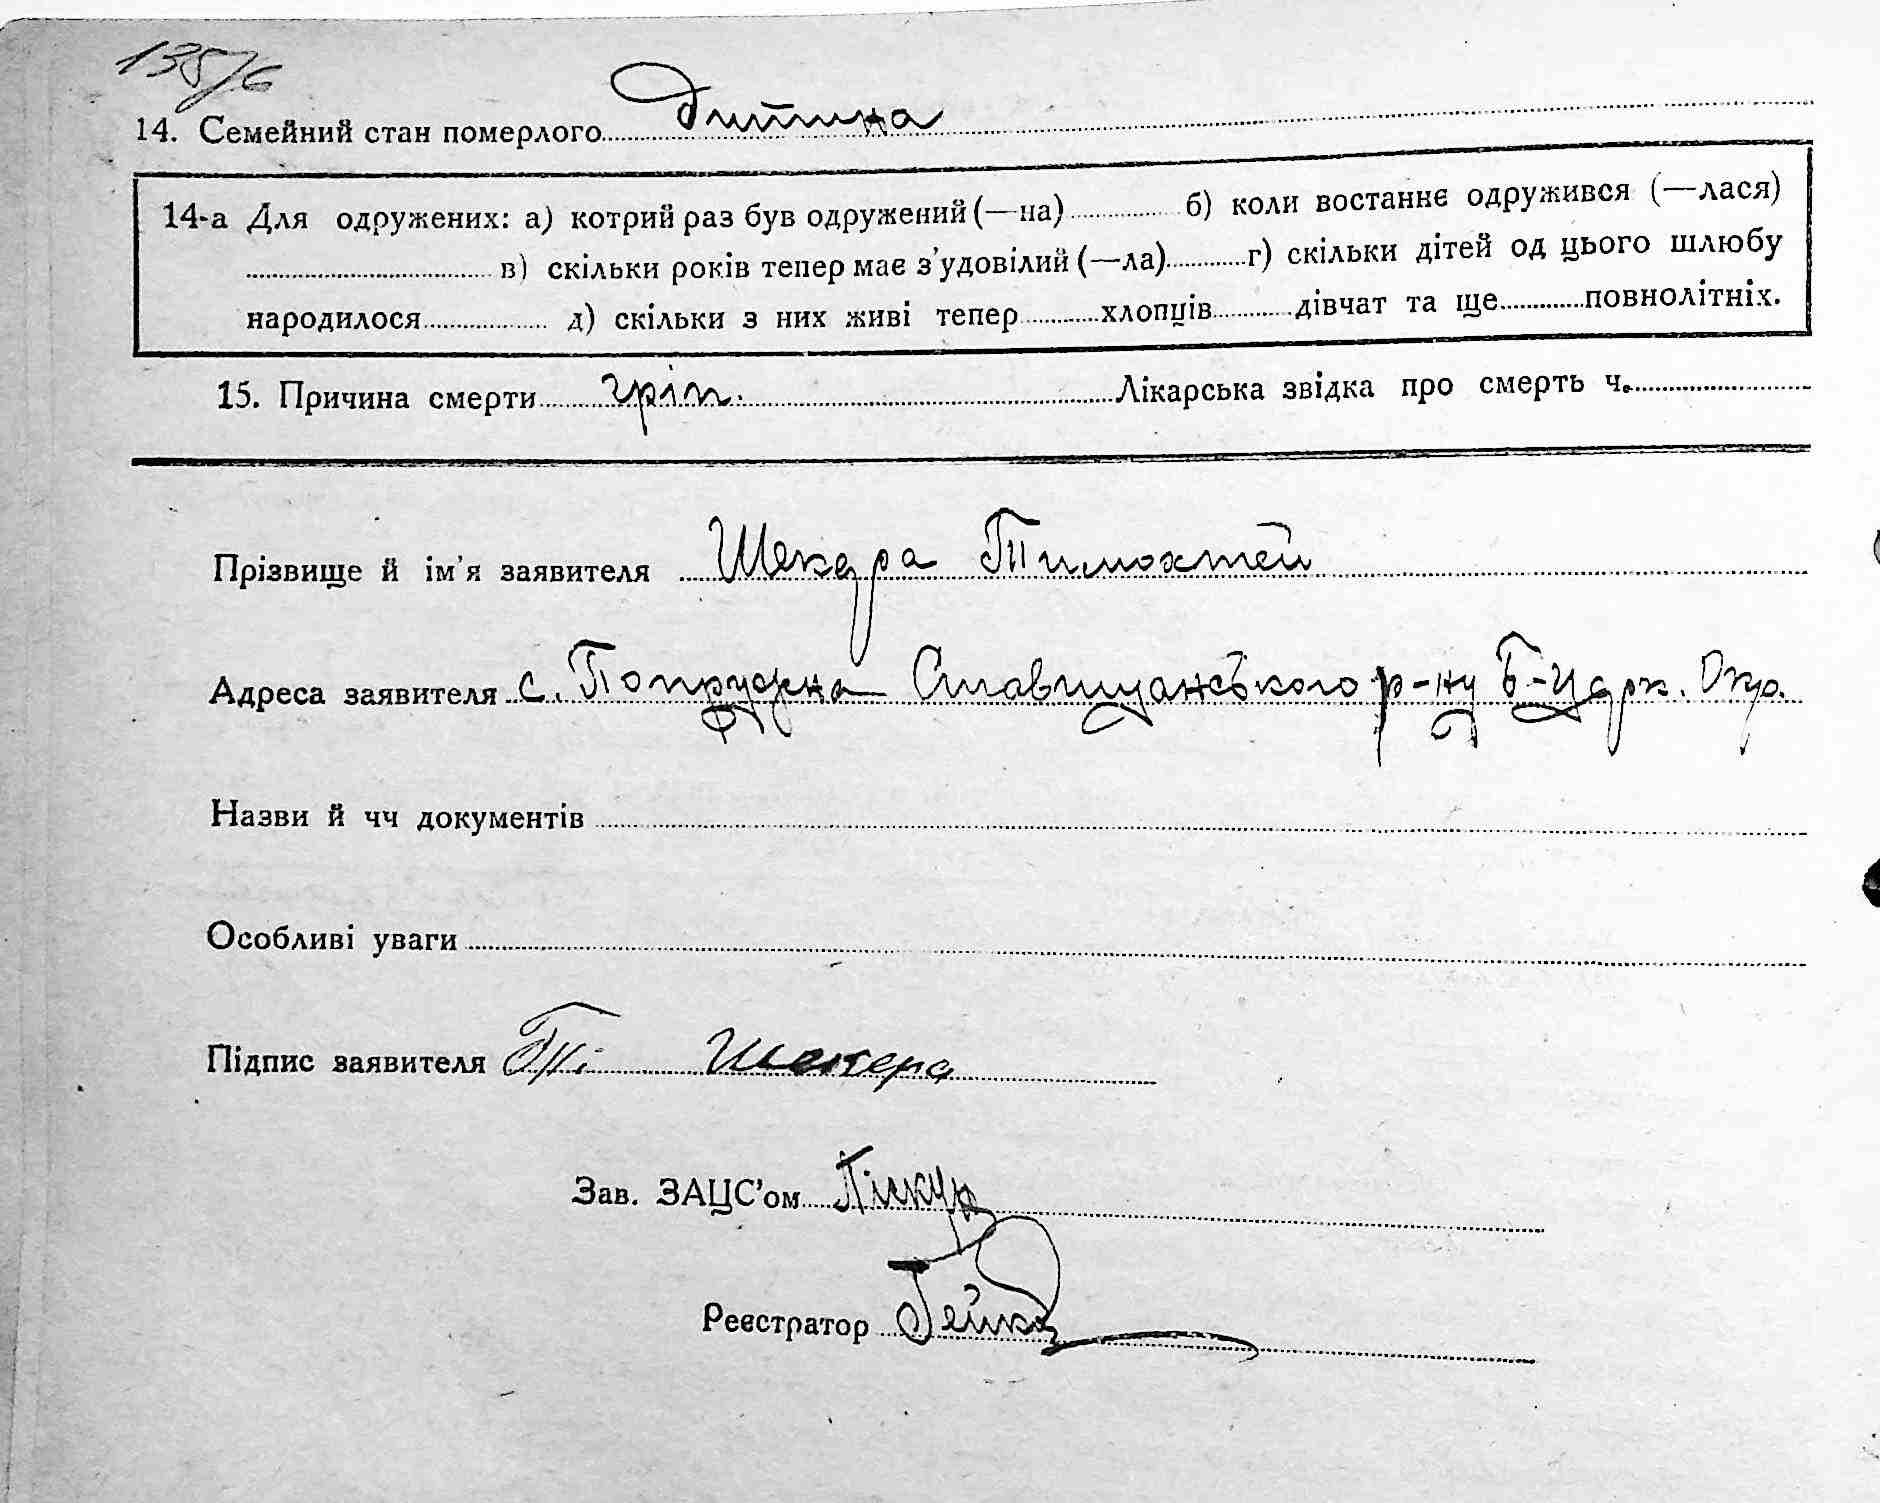 135/6
14. Семейний стан померлого дитина
14-а Для одружених: а) котрий раз був одружений (—на) б) коли востаннє одружився (—лася)
в) скільки років тепер має з’удовілий (—ла) г) скільки дітей од цього шлюбу
народилося д) скільки з них живі тепер хлопців дівчат та ще повнолітніх.
15. Причина смерти гріп. Лікарська звідка про смерть ч.
Прізвище й ім’я заявителя Шекера Тимохтей
Адреса заявителя с. Попружна Ставищанського р-ну Б-Церк. Окр.
Назви й чч документів
Особливі уваги
Підпис заявителя Шекера
Зав. ЗАЦС’ом Піскун
Реєстратор